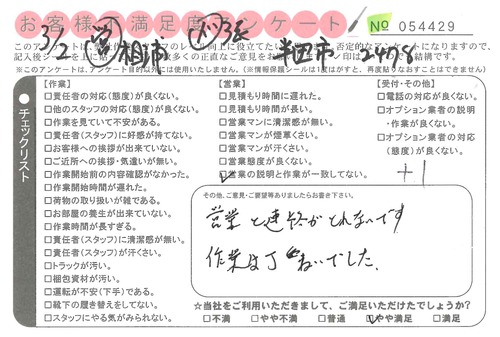 お客様満足度アンケート
No 054429
3/2 相 市 半田市 2498
記入後シールを上に貼
※このアンケートは、アンケート目的以外には使用いたしません。(※情報保護シールは1度はがすと、再度貼りなおすことはできません)
チェックリスト
【作業】
□責任者の対応(態度)が良くない。
□他のスタッフの対応(態度)が良くない。
□作業を見ていて不安がある。
□責任者(スタッフ)に好感が持てない。
□お客様への挨拶が出来ていない。
□ご近所への挨拶・気遣いが無い。
□作業開始前の内容確認がなかった。
□作業開始時間が遅れた。
□荷物の取り扱いが雑である。
□お部屋の養生が出来ていない。
□作業時間が長すぎる。
□責任者(スタッフ)に清潔感が無い。
□責任者(スタッフ)が汗くさい。
□トラックが汚い。
□梱包資材が汚い。
□運転が不安(下手)である。
□靴下の履き替えをしてない。
□スタッフにやる気がみられない。
【営業】
□見積もり時間に遅れた。
□見積もり時間が長い。
□営業マンに清潔感が無い。
□営業マンが煙草くさい。
□営業マンが汗くさい。
□営業態度が良くない。
☑営業の説明と作業が一致してない。
【受付・その他】
□電話の対応が良くない。
□オプション業者の説明
・作業が良くない。
□オプション業者の対応
(態度)が良くない。
+1
その他、ご意見・ご要望等ありましたらお書き下さい。
営業と連絡がとれないです
作業は丁ねいでした。
☆当社をご利用いただきまして、ご満足いただけたでしょうか?
□不満 □やや不満 □普通 ☑やや満足 □満足